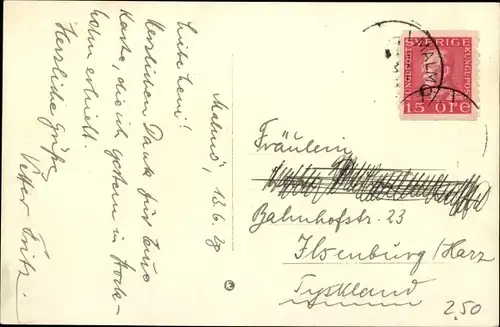 Malmö, 13.6.29
Liebe Leni!
Herzlichen Dank für Eure
Karte, die ich gestern in Stock-
holm erhielt.
Herzliche Grüße
Vetter Fritz.
SVERIGE
MALMÖ
15 ÖRE
Fräulein
Bahnhofstr. 23
Ilsenburg/Harz
Tyskland
2,50